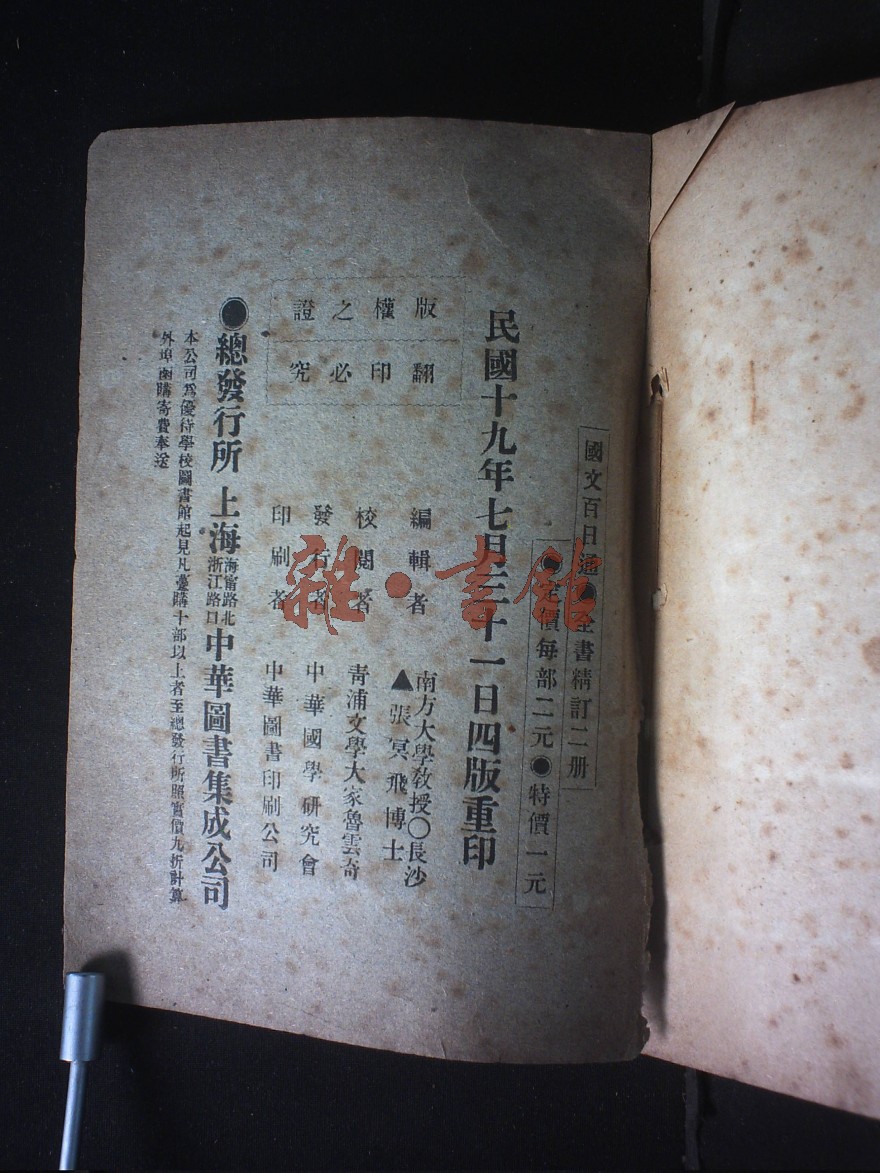 國文百日通●全書精訂二册
●定價每部二元●特價一元
民國十九年七月三十一日四版重印
版權之證
翻印必究
編輯者 南方大學教授○長沙
▲張冥飛博士
校閱者 青浦文學大家魯雲奇
發行者 中華國學研究會
印刷者 中華圖書印刷公司
●總發行所 上海 海甯路北 浙江路口 中華圖書集成公司
本公司爲優待學校圖書館起見凡躉購十部以上者至總發行所照實價九折計算
外埠函購寄費奉送
雜·書館